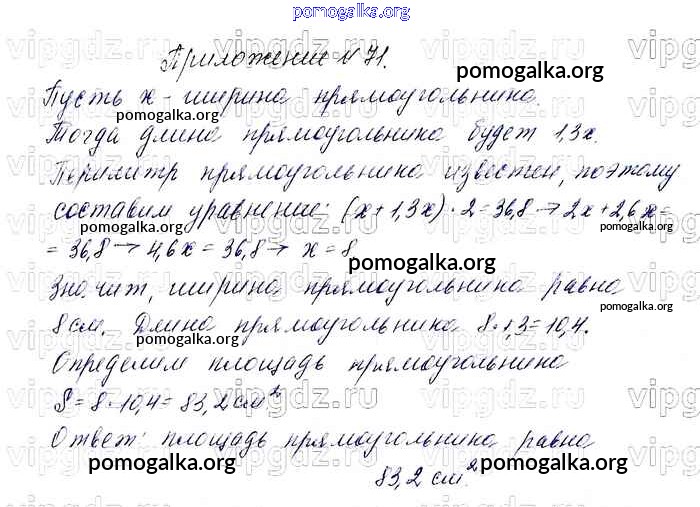 pomogalka.org
Приложение № 71.
pomogalka.org
Пусть x - ширина прямоугольника.
Тогда длина прямоугольника будет 1,3x.
pomogalka.org
pomogalka.org
Периметр прямоугольника известен, поэтому
составим уравнение: (x + 1,3x) · 2 = 36,8 → 2x + 2,6x =
pomogalka.org
= 36,8 → 4,6x = 36,8 → x = 8
pomogalka.org
Значит, ширина прямоугольника равна
pomogalka.org
8 см. Длина прямоугольника 8 · 1,3 = 10,4.
pomogalka.org
Определим площадь прямоугольника
S = 8 · 10,4 = 83,2 см²
pomogalka.org
Ответ: площадь прямоугольника равна
pomogalka.org
pomogalka.org
83,2 см.²
vipgdz.ru vipgdz.ru vipgdz.ru vipgdz.ru